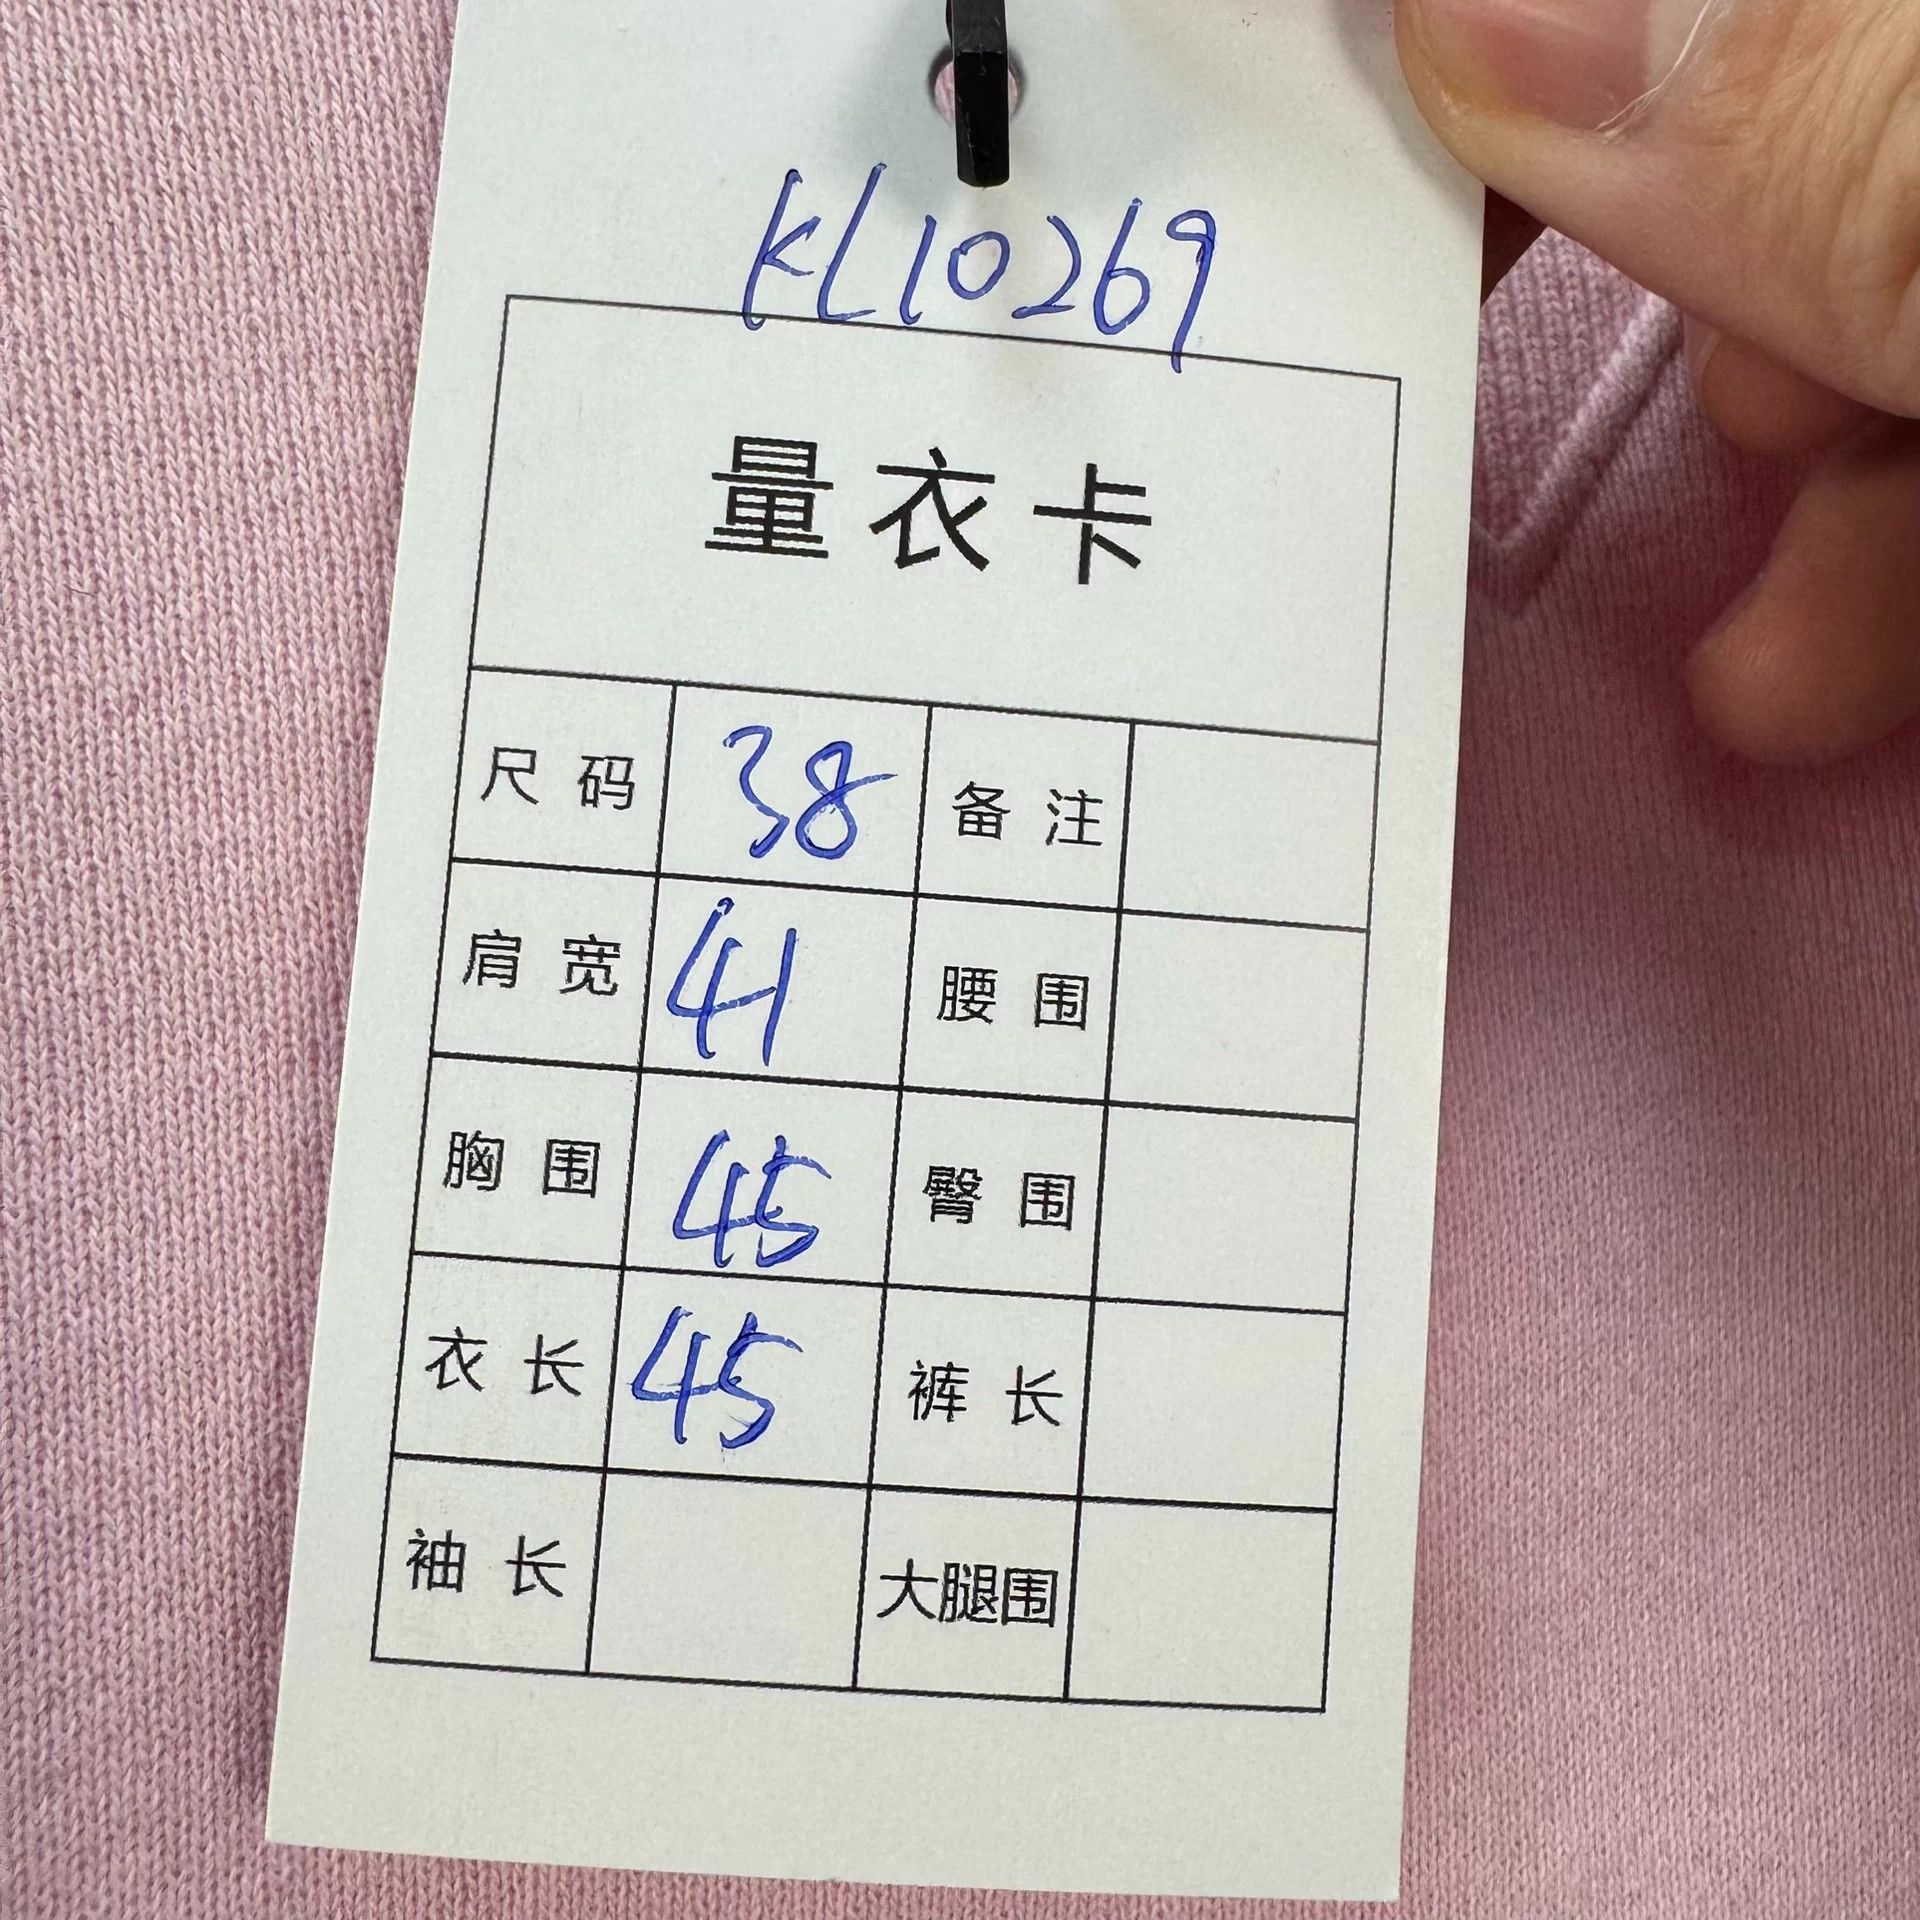 KL10269
量衣卡
尺码 38 备注
肩宽 41 腰围
胸围 45 臀围
衣长 45 裤长
袖长 大腿围